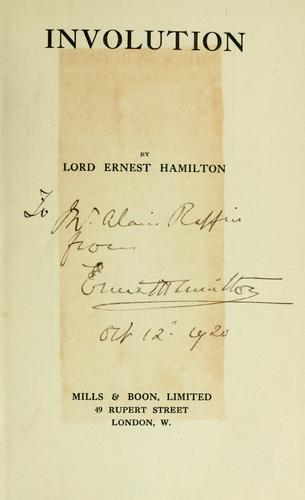 INVOLUTION
BY
LORD ERNEST HAMILTON
To Mr. Alain Raffin
from
Ernest Hamilton
Oct 12" 1920
MILLS & BOON, LIMITED
49 RUPERT STREET
LONDON, W.